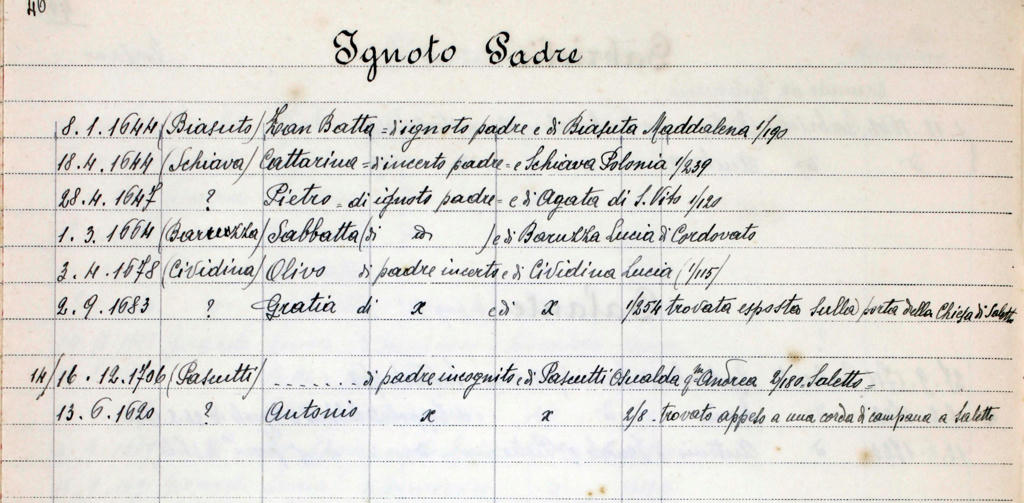 46
Ignoto Padre
8.1.1644 (Biasuto) Zan Batta = di ignoto padre e di Biasuta Maddalena 1/190
18.4.1644 (Schiava) Cattarina = di incerto padre = e Schiava Polonia 1/239
28.4.1647 ? Pietro = di ignoto padre = e di Agata di S. Vito 1/120
1.3.1664 (Baruzza) Sabbatta (di ) e di Baruzza Lucia di Cordovato
3.4.1678 (Cividina) Olivo di padre incerto e di Cividina Lucia (1/115)
2.9.1683 ? Gratia di x e di x 1/254 trovata esposta sulla porta della Chiesa di Saletto
14/16.12.1706 (Pascutti) ........ di padre incognito e di Pascutti Osualda qm Andrea 2/180. Saletto =
13.6.1620 ? Antonio x x 2/8 - trovato appeso a una corda di campana a Saletto